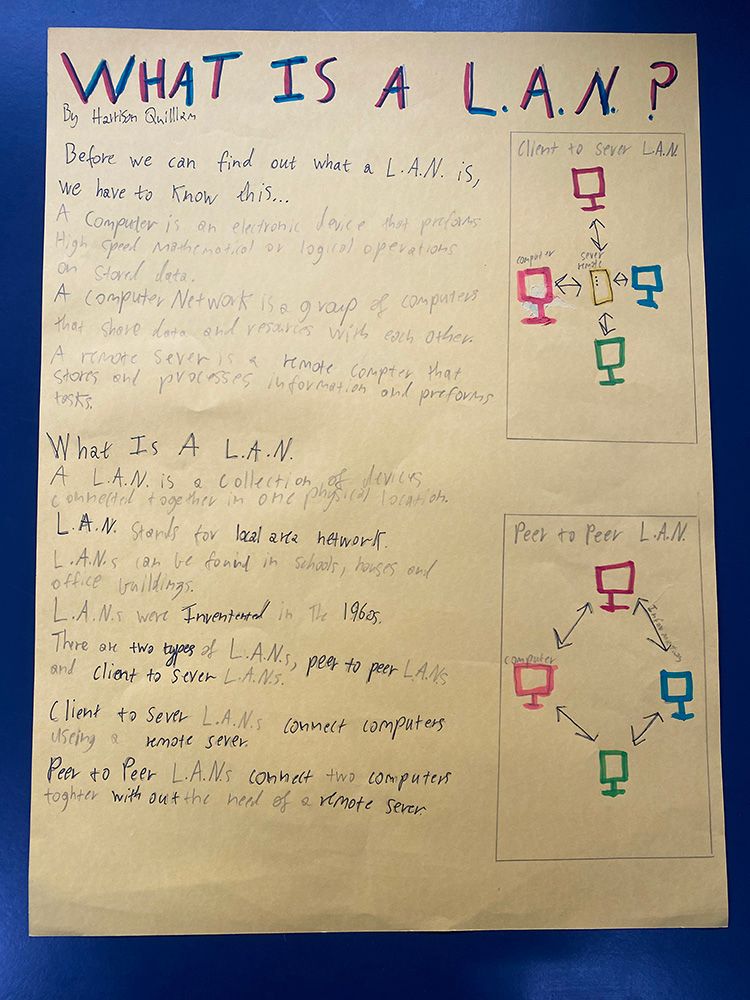 WHAT IS A L.A.N.?
By Harrison Quilliam
Before we can find out what a L.A.N. is,
we have to know this...
A computer is an electronic device that preforms
High speed mathematical or logical operations
on stored data.
A computer Network is a group of computers
that share data and resources with each other.
A remote sever is a remote compter that
stores and processes information and preforms
tasks.
What Is A L.A.N.
A L.A.N. is a collection of devices
connected together in one physical location.
L.A.N. stands for local area network.
L.A.N.s can be found in schools, houses and
office buildings.
L.A.N.s were Inventented in the 1960s.
There are two types of L.A.N.s, peer to peer LANs
and client to sever L.A.N.s.
Client to sever L.A.N.s connect computers
useing a remote sever.
Peer to Peer L.A.N.s connect two computers
toghter with out the need of a remote sever.
Client to sever L.A.N.
computer
sever
remote
Peer to Peer L.A.N.
Information
computer